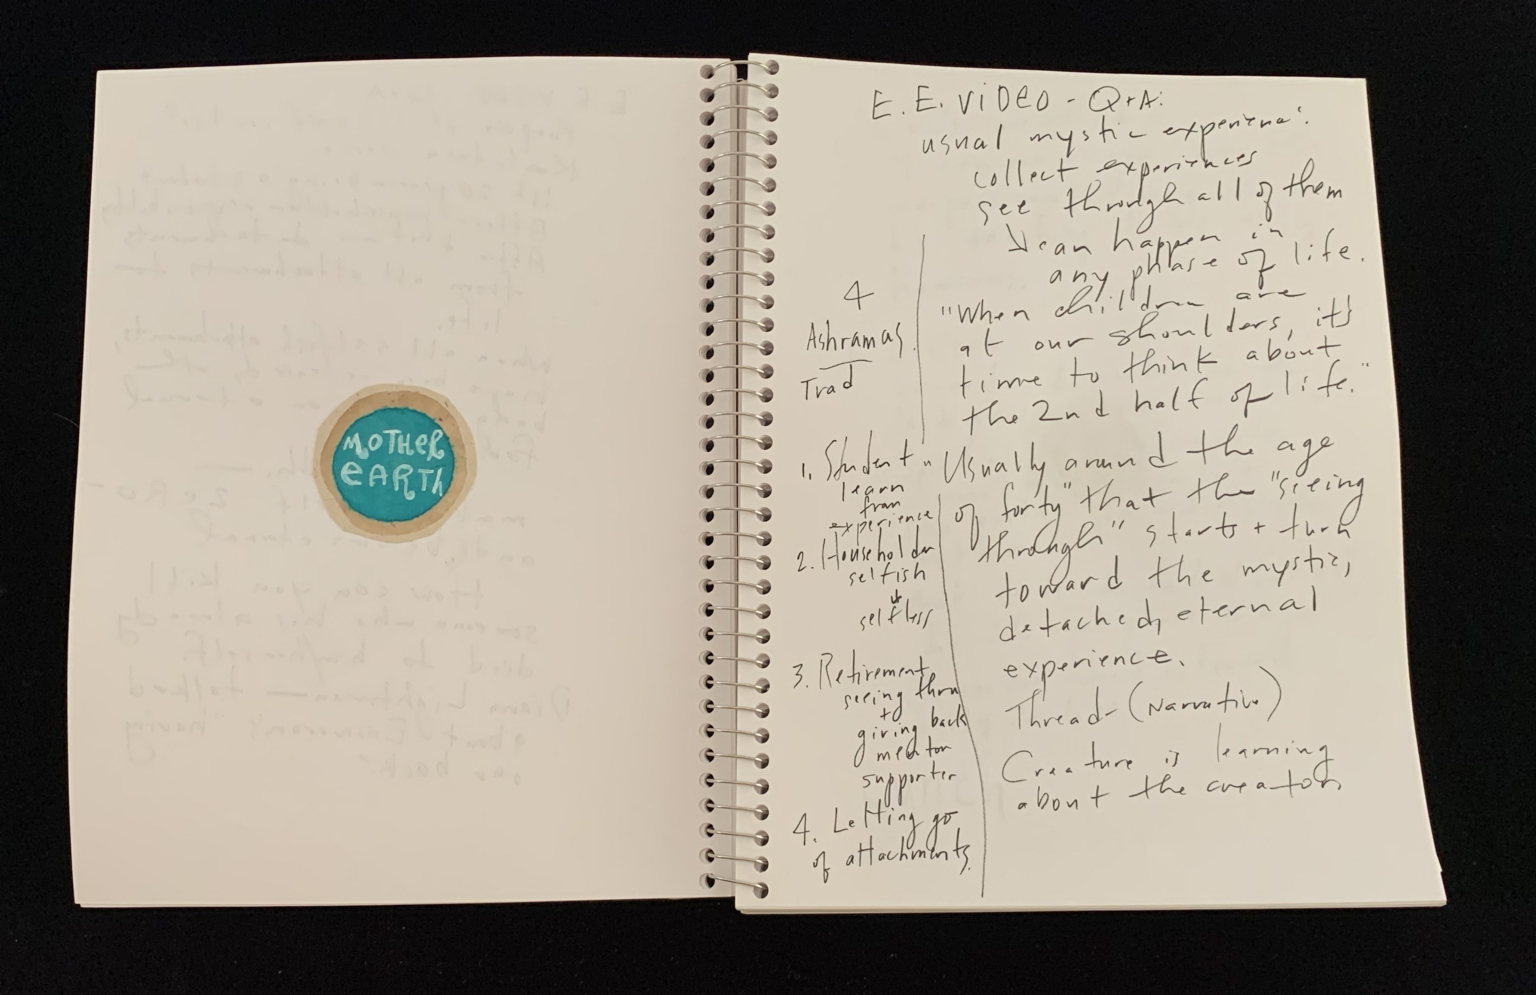 MOTHER
EARTH
E. E. VIDEO - Q+A:
usual mystic experience:
collect experiences
see through all of them
↳ can happen in
any phase of life.
"When children are
at our shoulders, it's
time to think about
the 2nd half of life."
"Usually around the age
of forty" that the "seeing
through" starts + turn
toward the mystic,
detached, eternal
experience.
Thread - (Narrative)
Creature is learning
about the creator.
4
Ashramas
Trad
1. Student
learn
from
experience
2. Householder
selfish
↓
selfless
3. Retirement,
seeing thru
to
giving back
mentor
supporter
4. Letting go
of attachments.